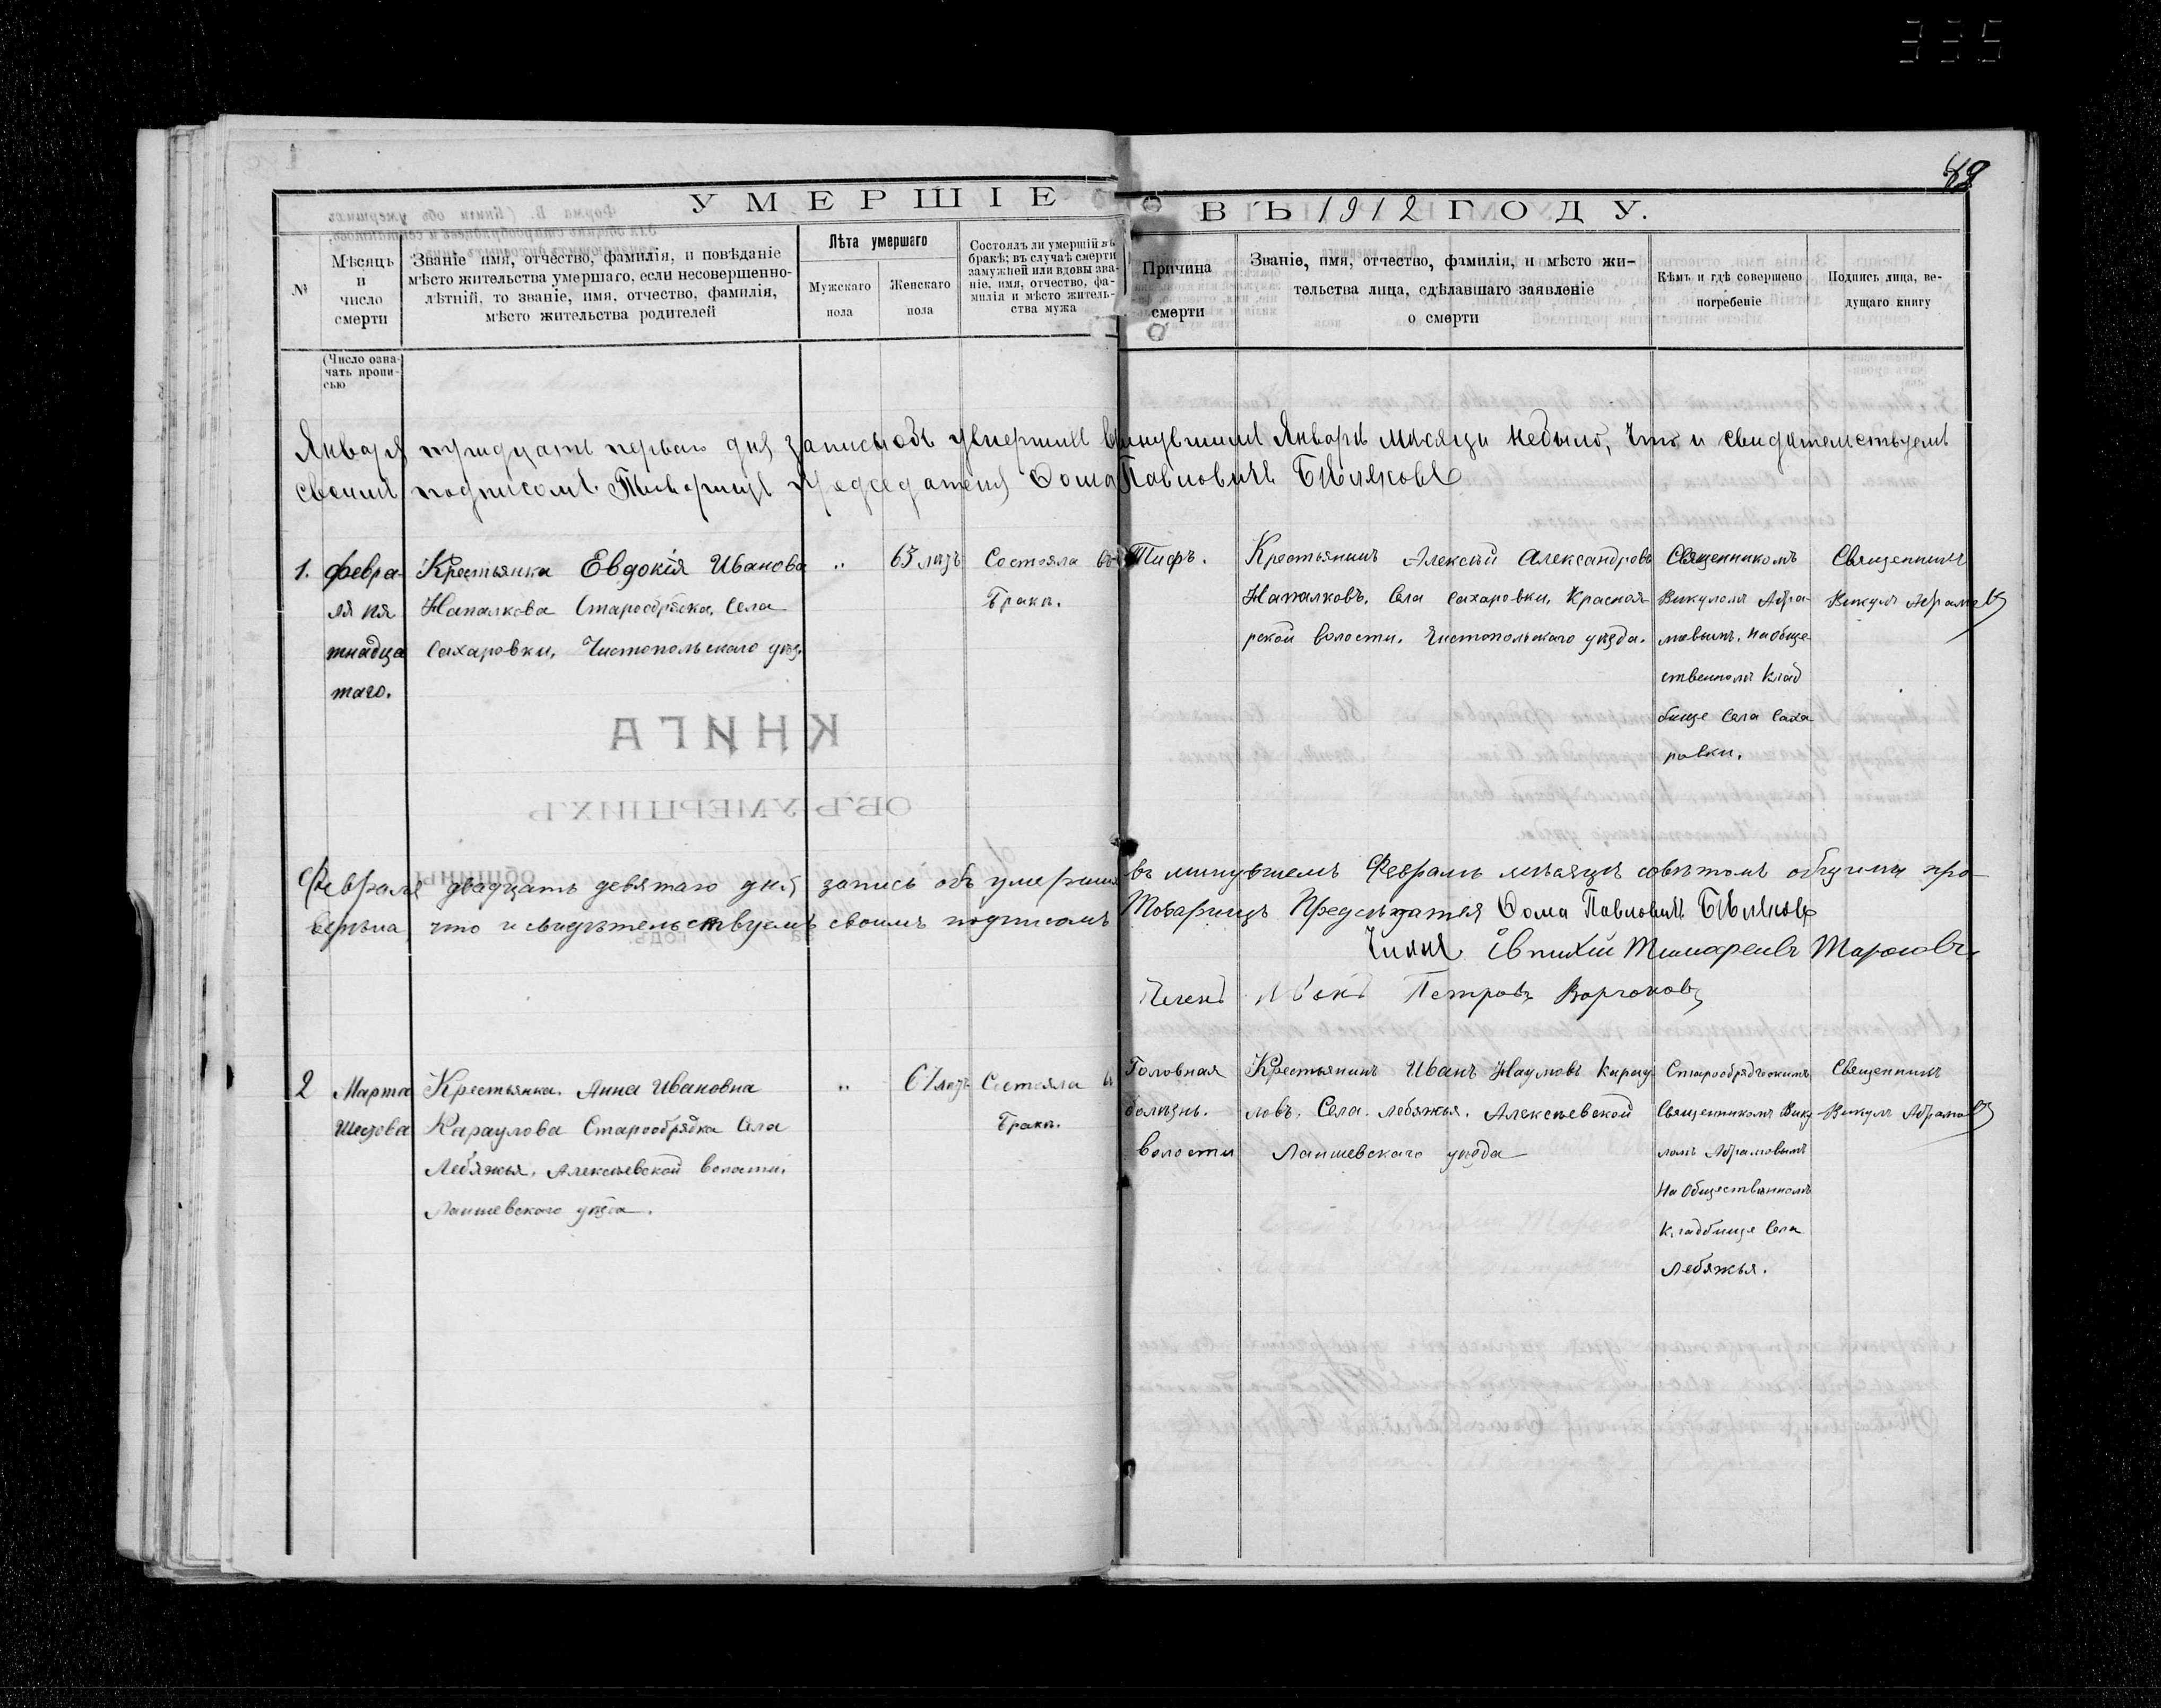 335
88
УМЕРШІЕ ВЪ 1912 ГОДУ.
№
Мѣсяцъ
и
число
смерти
Званіе имя, отчество, фамилія, и повѣданіе
мѣсто жительства умершаго, если несовершенно-
лѣтній, то званіе, имя, отчество, фамилія,
мѣсто жительства родителей
Лѣта умершаго
Мужскаго
пола
Женскаго
пола
Состоялъ ли умершій въ
бракѣ; въ случаѣ смерти
замужней или вдовы зва-
ніе, имя, отчество, фа-
милія и мѣсто житель-
ства мужа
Причина
смерти
Званіе, имя, отчество, фамилія, и мѣсто жи-
тельства лица, сдѣлавшаго заявленіе
о смерти
Кѣмъ и гдѣ совершено
погребеніе
Подпись лица, ве-
дущаго книгу
(Число озна-
чать пропи-
сью
Января тридцать перваго дня запись объ умершихъ въ минувшимъ Январѣ мѣсяцѣ небыло, что и свидѣтельствуемъ
своимъ подписомъ. Товарищъ председателя Фома Павловичъ Бѣляковъ
1.
февра-
ля пя
тнадца
таго.
Крестьянка Евдокія Иванова
Напалкова Старообрядка, Села
Сахаровки, Чистопольскаго уѣз.
"
65 лѣтъ
Состояла въ
Бракѣ.
Тифъ.
Крестьянинъ Алексѣй Александровъ
Напалковъ, Села Сахаровки, Краснояр-
рской волости, Чистопольскаго уѣзда.
Священникомъ
Викуломъ Абра-
мовымъ, на обще
ственномъ Клад
бище Села Саха
ровки.
Священникъ
Викулъ Абрамовъ
Февраля двадцать девятаго дня запись объ умершихъ въ минувшемъ Февралѣ мѣсяцѣ совѣтомъ общины про
верена что и свидѣтельствуемъ своимъ подписомъ Товарищъ Председателя Фома Павловичъ Бѣляковъ
Члѣнъ Тарасовъ
Членъ Петровъ
2
Марта
Шестова
Крестьянка. Анна Ивановна
Караулова Старообрядка Села
Лебяжья, Алексѣевской волости,
Лаишевскаго уѣзда.
"
67 лѣтъ
Состояла въ
Бракѣ.
Головная
болѣзнь.
Крестьянинъ Иванъ Наумовъ Карау
ловъ. Села. Лебяжья. Алексѣевской
волости Лаишевскаго уѣзда
Старообрядческимъ
Священникомъ Вику
ломъ Абрамовымъ
На Общественномъ
Кладбище Села
Лебяжья.
Священникъ
Викулъ Абрамовъ